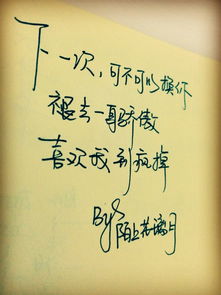 下一次,可不可以换你
褪去一身骄傲
喜欢我到疯掉
By: 陌上月